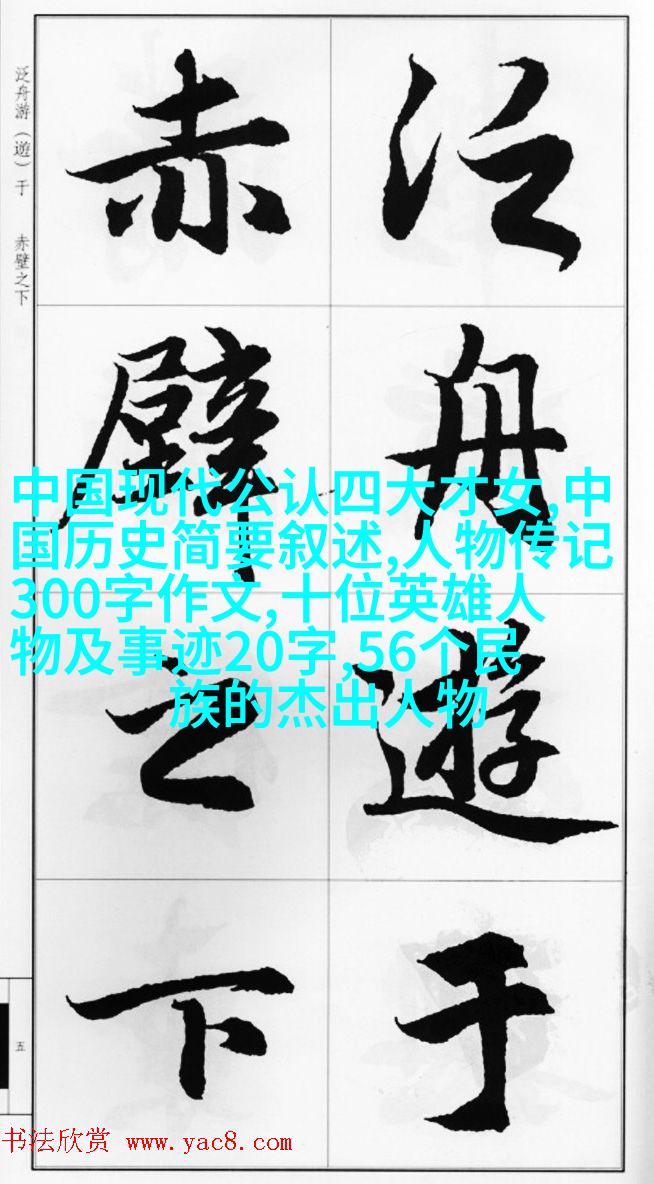 泛舟游（遊）于　赤壁之下
泛舟遊于
赤壁之下
中国现代公认四大才女,中
国历史简要叙述,人物传记
300字作文,十位英雄人
物及事迹20字,56个民
族的杰出人物
五
书法欣赏 www.yac8.com